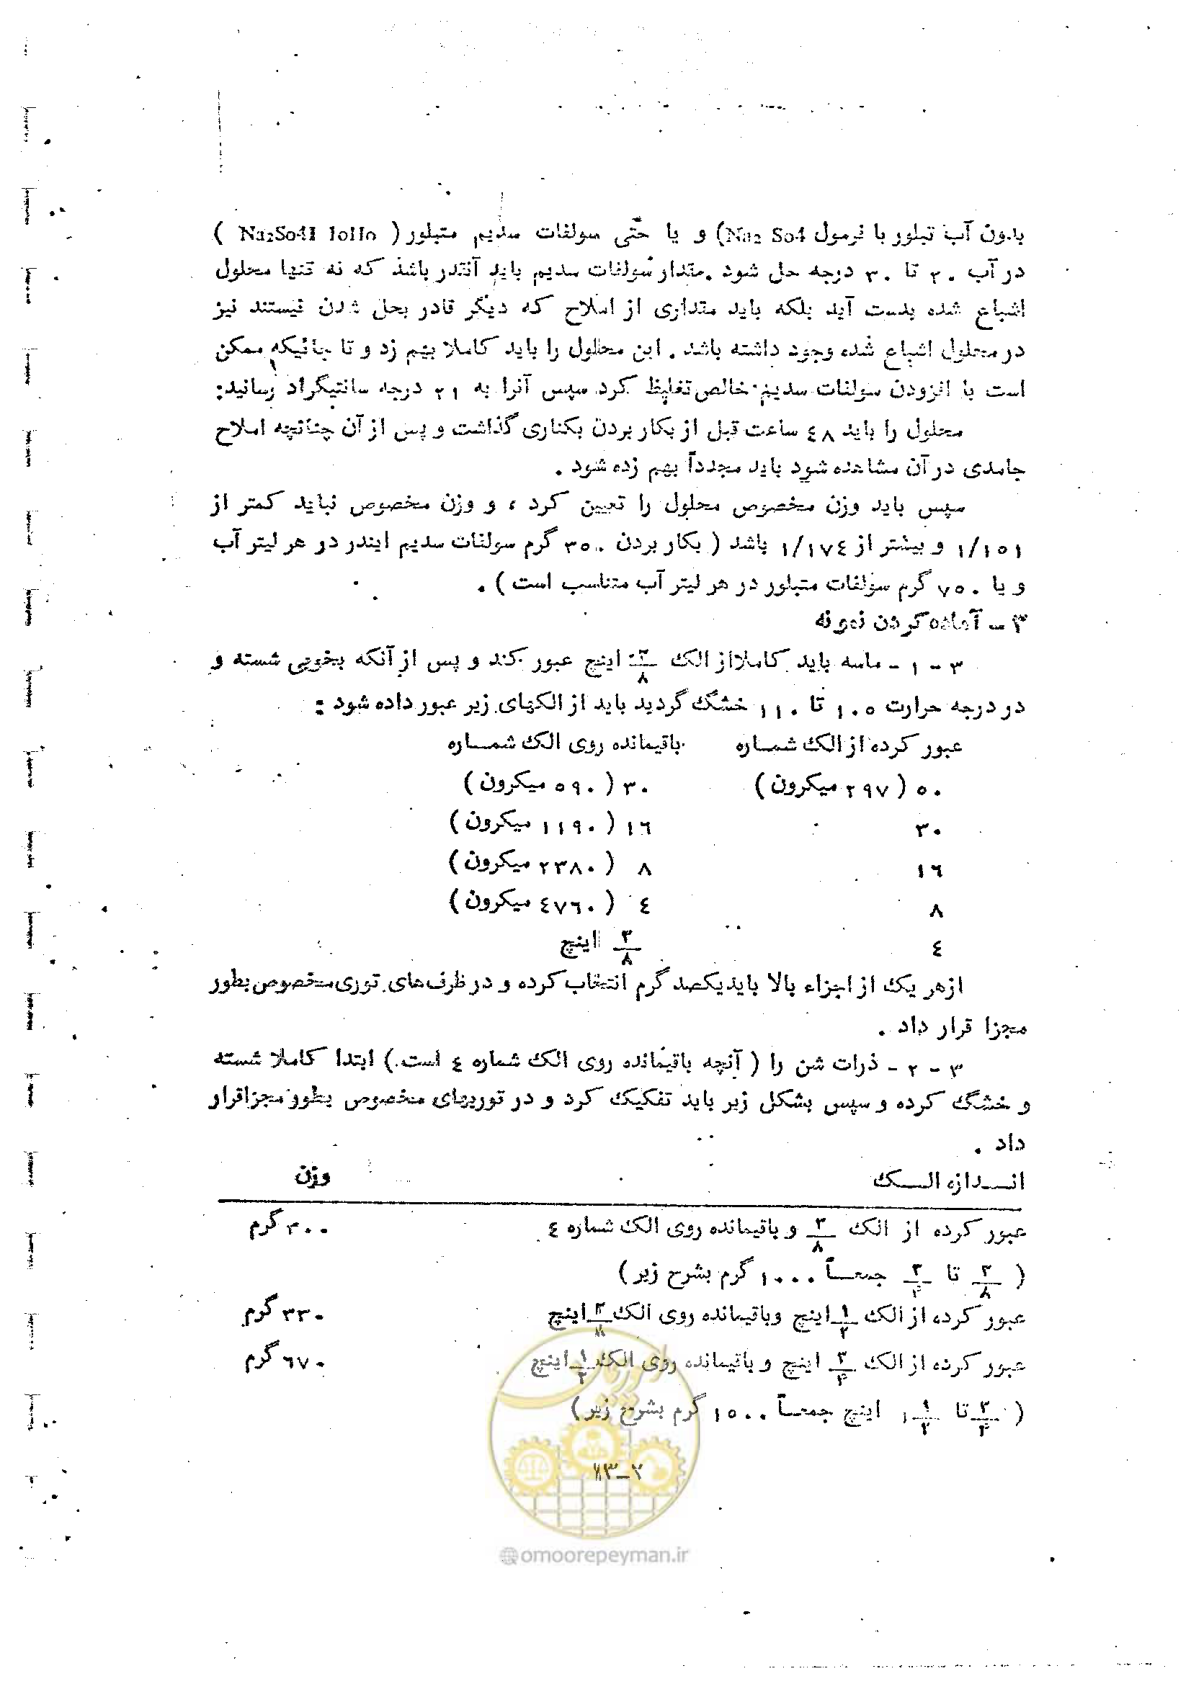 بدون آب تبلور با فرمول Na₂ So4) و یا حتّی سولفات سدیم متبلور ( )
در آب ۲۰ تا ۳۰ درجه حل شود . مقدار سولفات سدیم باید آنقدر باشد که نه تنها محلول
اشباع شده بدست آید بلکه باید مقداری از املاح که دیگر قادر بحل شدن نیستند نیز
در محلول اشباع شده وجود داشته باشد . این محلول را باید کاملا بهم زد و تا جائیکه ممکن
است با افزودن سولفات سدیم خالص تغلیظ کرد سپس آنرا به ۲۱ درجه سانتیگراد رسانید:
محلول را باید ٤٨ ساعت قبل از بکار بردن بکناری گذاشت و پس از آن چنانچه املاح
جامدی در آن مشاهده شود باید مجدداً بهم زده شود .
سپس باید وزن مخصوص محلول را تعیین کرد ، و وزن مخصوص نباید کمتر از
۱/۱٥۱ و بیشتر از ۱/۱۷٤ باشد ( بکار بردن ۳٥۰ گرم سولفات سدیم ایندر در هر لیتر آب
و یا ۷٥۰ گرم سولفات متبلور در هر لیتر آب متناسب است ) .
۳ – آماده کردن نمونه
۳ - ۱ - ماسه باید کاملا از الک ۳/۸ اینچ عبور کند و پس از آنکه بخوبی شسته و
در درجه حرارت ۱۰٥ تا ۱۱۰ خشک گردید باید از الکهای زیر عبور داده شود :
عبور کرده از الک شماره باقیمانده روی الک شماره
٥۰ ( ۲۹۷ میکرون ) ۳۰ ( ٥۹۰ میکرون )
۳۰ ۱٦ ( ۱۱۹۰ میکرون )
۱٦ ۸ ( ۲۳۸۰ میکرون )
۸ ٤ ( ٤۷٦۰ میکرون )
٤ ۳/۸ اینچ
از هر یک از اجزاء بالا باید یکصد گرم انتخاب کرده و در ظرف‌های توری مخصوص بطور
مجزا قرار داد .
۳ - ۲ - ذرات شن را ( آنچه باقیمانده روی الک شماره ٤ است ) ابتدا کاملا شسته
و خشک کرده و سپس بشکل زیر باید تفکیک کرد و در توریهای مخصوص بطور مجزا قرار
داد .
اندازه الک وزن
عبور کرده از الک ۳/۸ و باقیمانده روی الک شماره ٤ ۳۰۰ گرم
( ۳/۸ تا ۳/۴ جمعاً ۱۰۰۰ گرم بشرح زیر )
عبور کرده از الک ۱/۲ اینچ و باقیمانده روی الک ۳/۸ اینچ ۳۳۰ گرم
عبور کرده از الک ۳/۴ اینچ و باقیمانده روی الک ۱/۲ اینچ ٦۷۰ گرم
( ۳/۴ تا ۱ ۱/۲ اینچ جمعاً ۱٥۰۰ گرم بشرح زیر )
@omoorepeyman.ir